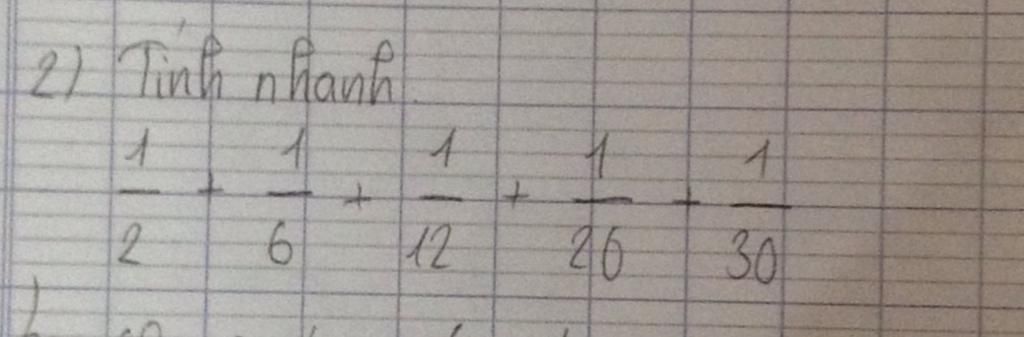 2) Tính nhanh
1/2 + 1/6 + 1/12 + 1/20 + 1/30